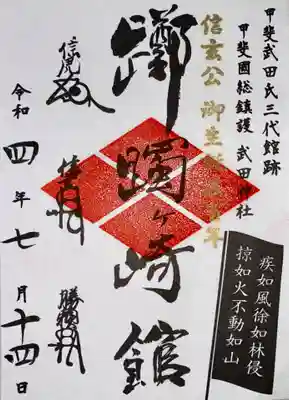 甲斐武田氏三代館跡
甲斐國総鎮護 武田神社
信玄公 御生誕五百年
躑躅ヶ崎館
疾如風徐如林侵
掠如火不動如山
信虎
信玄
勝頼
令和四年七月十四日